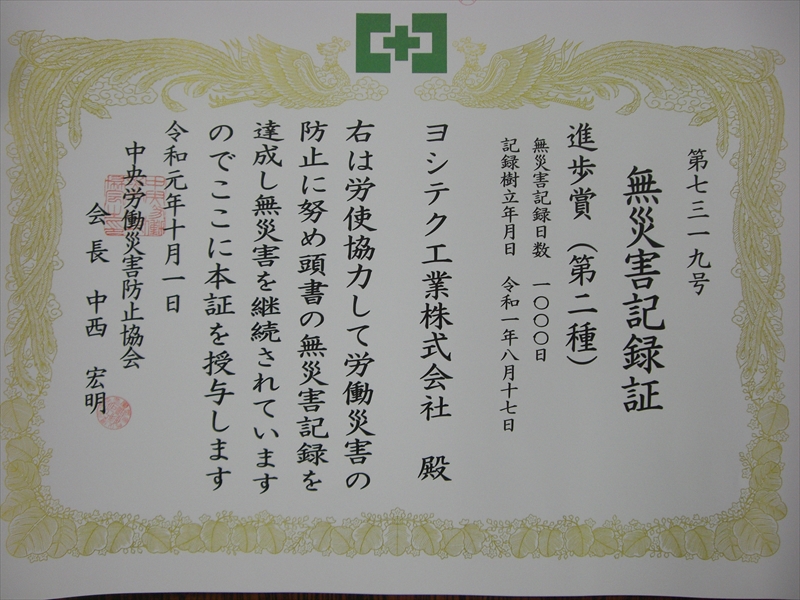 第七三一九号
無災害記録証
進歩賞（第二種）
無災害記録日数　一〇〇〇日
記録樹立年月日　令和一年八月十七日
ヨシテク工業株式会社　殿
右は労使協力して労働災害の
防止に努め頭書の無災害記録を
達成し無災害を継続されています
のでここに本証を授与します
令和元年十月一日
中央労働災害防止協会
会長　中西　宏明